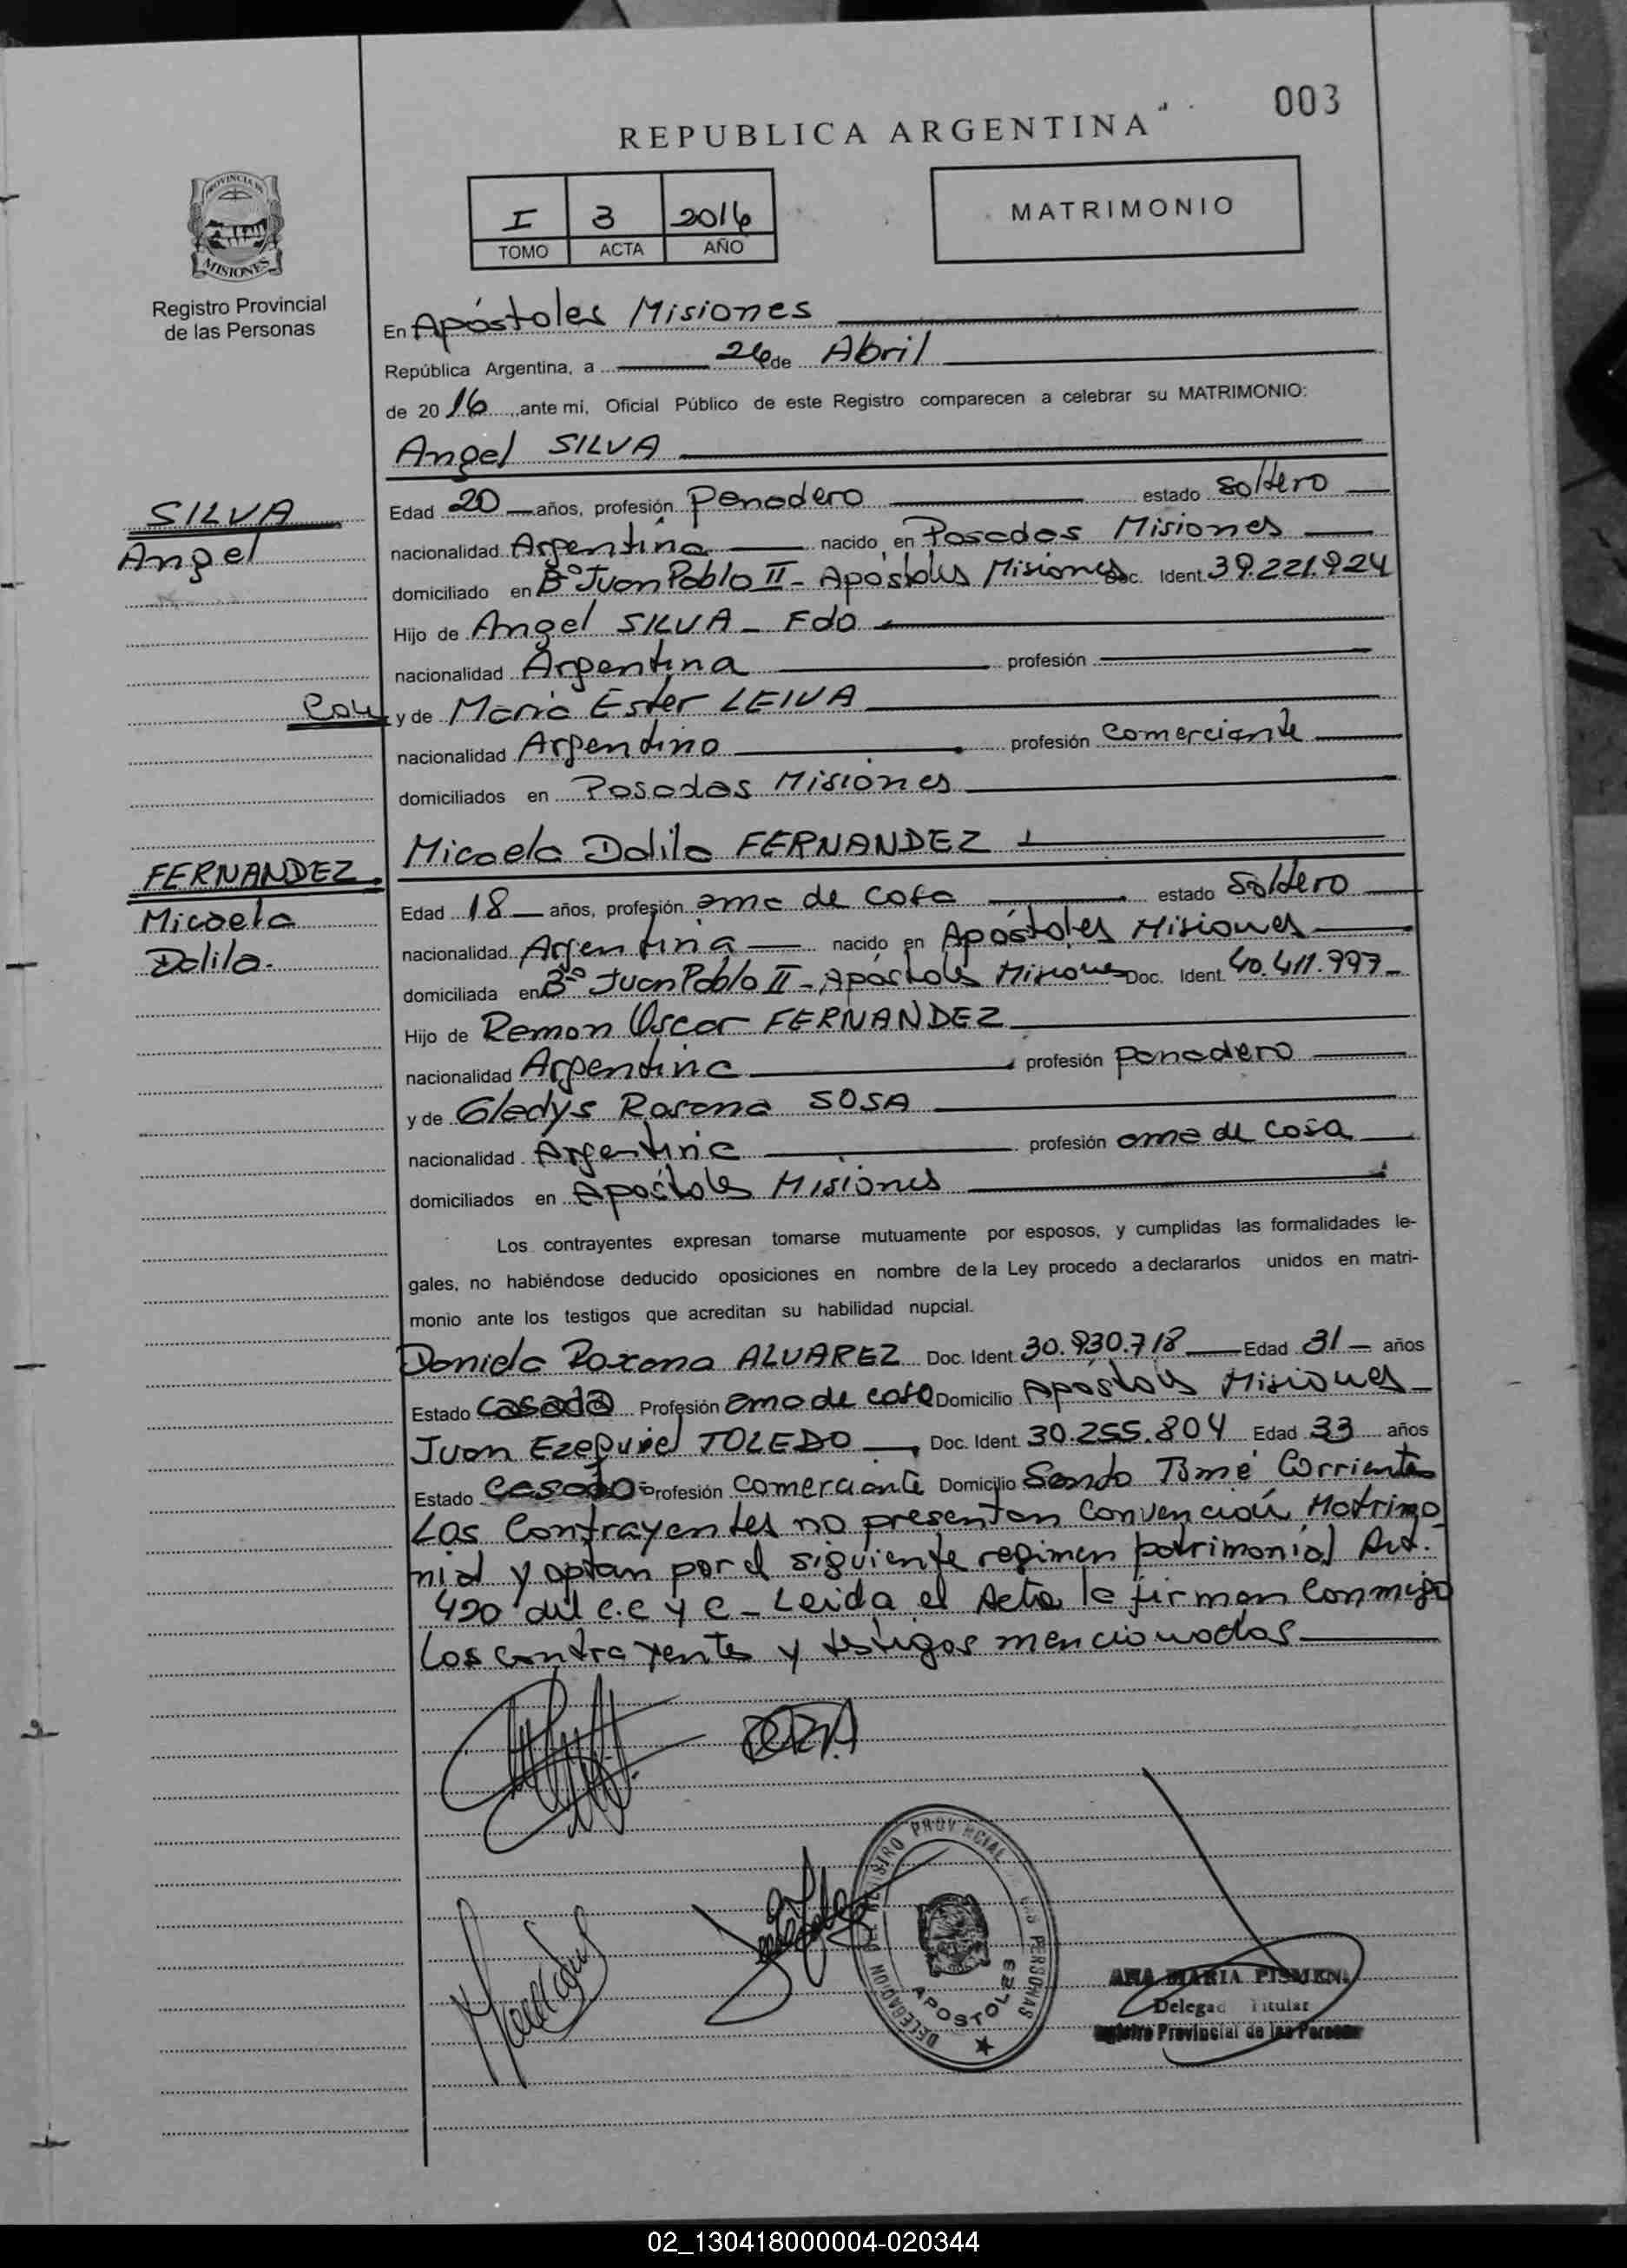 003
REPUBLICA ARGENTINA
PROVINCIA DE
MISIONES
Registro Provincial
de las Personas
I 3 2016
TOMO ACTA AÑO
MATRIMONIO
En Apóstoles Misiones
República Argentina, a 26 de Abril
de 2016, ante mi, Oficial Público de este Registro comparecen a celebrar su MATRIMONIO:
Angel SILVA
SILVA
Angel
Edad 20 años, profesión Panadero estado soltero
nacionalidad Argentina nacido en Posadas Misiones
domiciliado en Bº Juan Pablo II - Apóstoles Misiones Doc. Ident. 39.221.924
Hijo de Angel SILVA - Fdo
nacionalidad Argentina profesión
Con
y de Maria Ester LEIVA
nacionalidad Argentina profesión Comerciante
domiciliados en Posadas Misiones
Micaela Dalila FERNANDEZ
FERNANDEZ
Micaela
Dalila.
Edad 18 años, profesión ama de casa estado Soltera
nacionalidad Argentina nacido en Apóstoles Misiones
domiciliada en Bº Juan Pablo II - Apóstoles Misiones Doc. Ident. 40.411.997
Hijo de Ramon Oscar FERNANDEZ
nacionalidad Argentina profesión Panadero
y de Gladys Rosana SOSA
nacionalidad Argentina profesión ama de casa
domiciliados en Apóstoles Misiones
Los contrayentes expresan tomarse mutuamente por esposos, y cumplidas las formalidades le-
gales, no habiéndose deducido oposiciones en nombre de la Ley procedo a declararlos unidos en matri-
monio ante los testigos que acreditan su habilidad nupcial.
Daniela Roxana ALVAREZ Doc. Ident. 30.930.718 Edad 31 años
Estado casada Profesión ama de casa Domicilio Apóstoles Misiones
Juan Ezequiel TOLEDO Doc. Ident. 30.255.804 Edad 33 años
Estado Casado Profesión Comerciante Domicilio Santo Tomé Corrientes
Los Contrayentes no presentan Convención Matrimo
nial y optan por el siguiente regimen patrimonial Art.
420 del C.C y C - Leida el Acta la firman Conmigo
los contrayentes y testigos mencionados
DELEGACION DEL REGISTRO PROVINCIAL DE LAS PERSONAS
APOSTOLES
ANA MARIA
Delegad Titular
Registro Provincial de las Personas
02_130418000004-020344